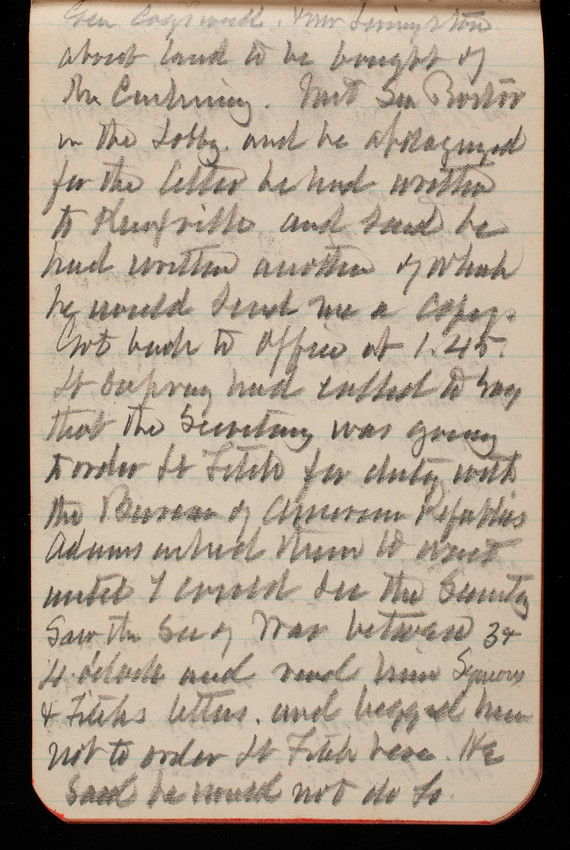 Gen Cogswell. & Mr Livingston
about land to be bought of
Mr Cushing. Met Gen
in the Lobby. and he apologized
for the letter he had written
to and said he
had written another of which
he would send me a copy.
Got back to office at 1.45.
Lt had called to say
that the Secretary was going
to order Lt Fitch for duty with
the Bureau of American Republics
Adams asked them to wait
until I could see the Secretary
Saw the Sec of War between 3 &
4 oclock and read him Squiers
& Fitchs letters. and begged him
not to order Lt Fitch here. He
said he would not do so.